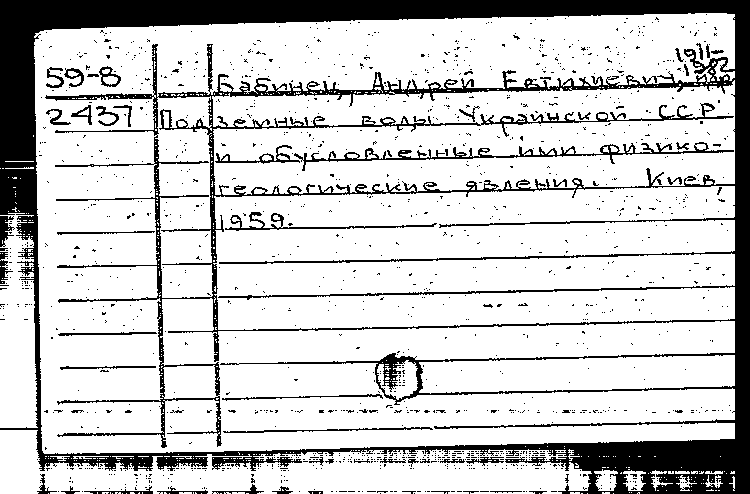 1911-
1982
59-8 Бабинец, Андрей Евтихиевич,
2437 Подземные воды Украинской ССР
и обусловленные ими физико-
геологические явления. Киев,
1959.